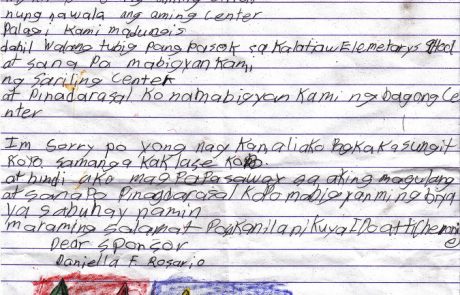 nung nawala ng aming Center
Palagi Kami madungis
dahil walang tubig poang pasok sa Kalatiaw Elemetarys
at sana Po mabigyan Kami
ng Sariling Center
at Pinadarasal Ko na mabigyan Kami ng bagong Ce
nter
Im Sorry po yong nag
Koyo sa manga kaklase ko
at hindi ako mag Pa Pasaway sa aking magulang
at sana Po Pinagdarasal Ko Po mabigyan ming biya
ya sa buhay namin
maraming salamat Po
Dear Sponsor
Daniella F. Rosario